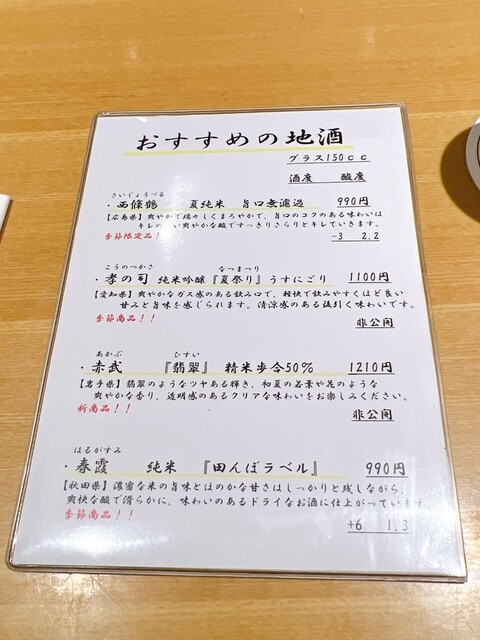 おすすめの地酒
グラス150cc
酒度 酸度
さいじょうづる
・西條鶴 夏純米 旨口無濾過 990円
【広島県】爽やかで瑞々しくまろやかで、旨口のコクのある味わいは
キレのいい爽やかな酸ですっきりさらりとキレていきます。
季節限定品！
-3 2.2
こうのつかさ なつまつり
・孝の司 純米吟醸『夏祭り』うすにごり 1100円
【愛知県】爽やかなガス感のある飲み口で、軽快で飲みやすくほど良い
甘みと旨味を感じられます。清涼感のある後引く味わいです。
季節商品！！
非公開
あかぶ ひすい
・赤武 『翡翠』 精米歩合50% 1210円
【岩手県】翡翠のようなツヤある輝き、初夏の若葉や花のような
爽やかな香り、透明感のあるクリアな味わいをお楽しみください。
新商品！！
非公開
はるがすみ
・春霞 純米 『田んぼラベル』 990円
【秋田県】濃密な米の旨味とほのかな甘さはしっかりと残しながら、
爽快な酸で滑らかに、味わいのあるドライなお酒に仕上がっています。
季節商品！！
+6 1.3